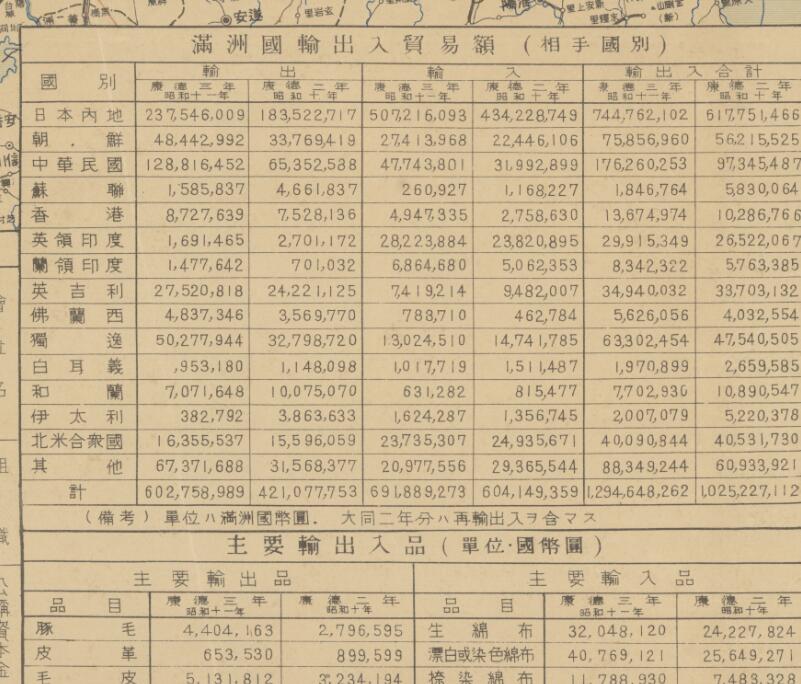 安遼
玄岩里
上安新
滿洲國輸出入貿易額 (相手國別)
國別 輸出 輸入 輸出入合計
康德三年 康德二年 康德三年 康德二年 康德三年 康德二年
昭和十一年 昭和十年 昭和十一年 昭和十年 昭和十一年 昭和十年
日本內地 237,546,009 183,522,717 507,216,093 434,228,749 744,762,102 617,751,466
朝鮮 48,442,992 33,769,419 27,413,968 22,446,106 75,856,960 56,215,525
中華民國 128,816,452 65,352,588 47,743,801 31,992,899 176,260,253 97,345,487
蘇聯 1,585,837 4,661,837 260,927 1,168,227 1,846,764 5,830,064
香港 8,727,639 7,528,136 4,947,335 2,758,630 13,674,974 10,286,766
英領印度 1,691,465 2,701,172 28,223,884 23,820,895 29,915,349 26,522,067
蘭領印度 1,477,642 701,032 6,864,680 5,062,353 8,342,322 5,763,385
英吉利 27,520,818 24,221,125 7,419,214 9,482,007 34,940,032 33,703,132
佛蘭西 4,837,346 3,569,770 788,710 462,784 5,626,056 4,032,554
獨逸 50,277,944 32,798,720 13,024,510 14,741,785 63,302,454 47,540,505
白耳義 ,953,180 1,148,098 1,017,719 1,511,487 1,970,899 2,659,585
和蘭 7,071,648 10,075,070 631,282 815,477 7,702,930 10,890,547
伊太利 382,792 3,863,633 1,624,287 1,356,745 2,007,079 5,220,378
北米合衆國 16,355,537 15,596,059 23,735,307 24,935,671 40,090,844 40,531,730
其他 67,371,688 31,568,377 20,977,556 29,365,544 88,349,244 60,933,921
計 602,758,989 421,077,753 691,889,273 604,149,359 1,294,648,262 1,025,227,112
(備考) 單位ハ滿洲國幣圓. 大同二年分ハ再輸出入ヲ含マス
主要輸出入品 (單位·國幣圓)
主要輸出品 主要輸入品
品目 康德三年 康德二年 品目 康德三年 康德二年
昭和十一年 昭和十年 昭和十一年 昭和十年
豚毛 4,404,163 2,796,595 生綿布 32,048,120 24,227,824
皮革 653,530 899,599 漂白或染色綿布 40,769,121 25,649,271
毛皮 5,131,812 3,234,194 捺染綿布 11,788,930 7,483,328